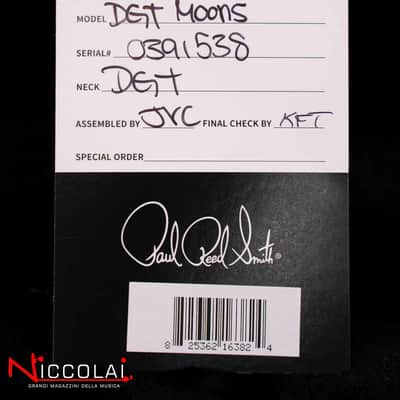 MODEL DGT Moons
SERIAL# 0391538
NECK DGT
ASSEMBLED BY JVC FINAL CHECK BY KFT
SPECIAL ORDER
Paul Reed Smith®
8 25362 16382 4
NICCOLAI
GRANDI MAGAZZINI DELLA MUSICA